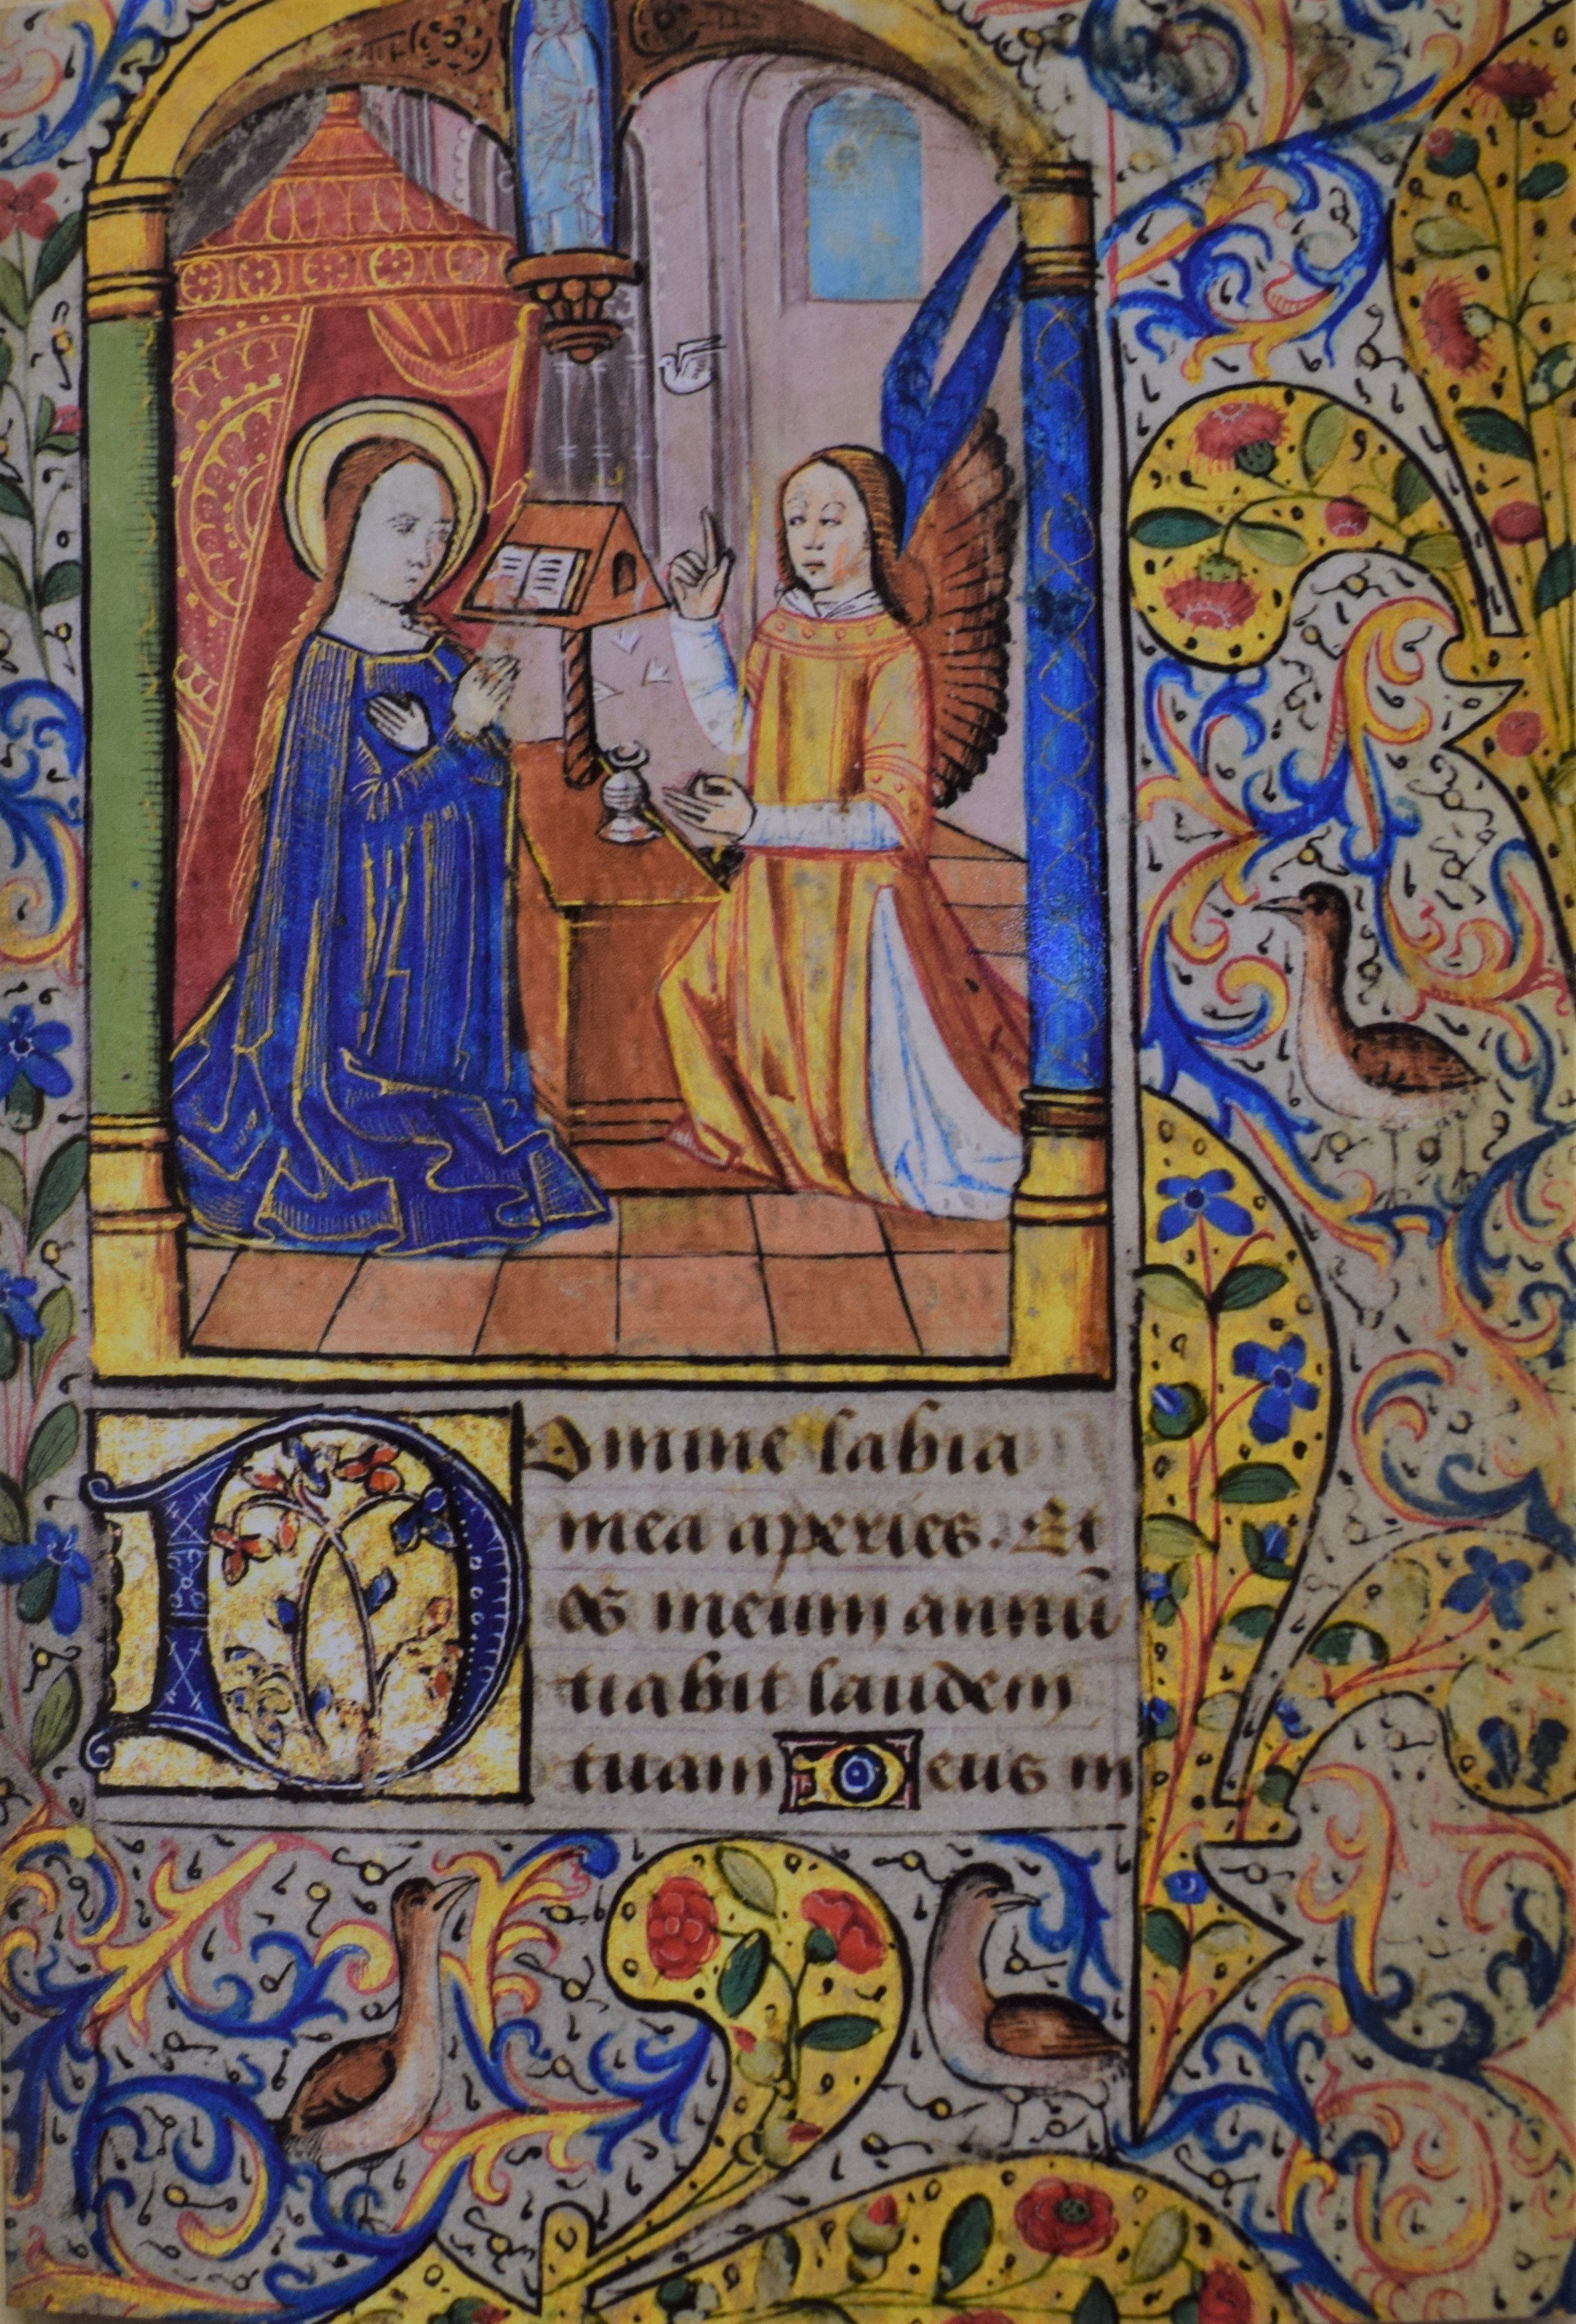 DOmine labia
mea aperies. Et
os meum annū
tiabit laudem
tuam Deus in